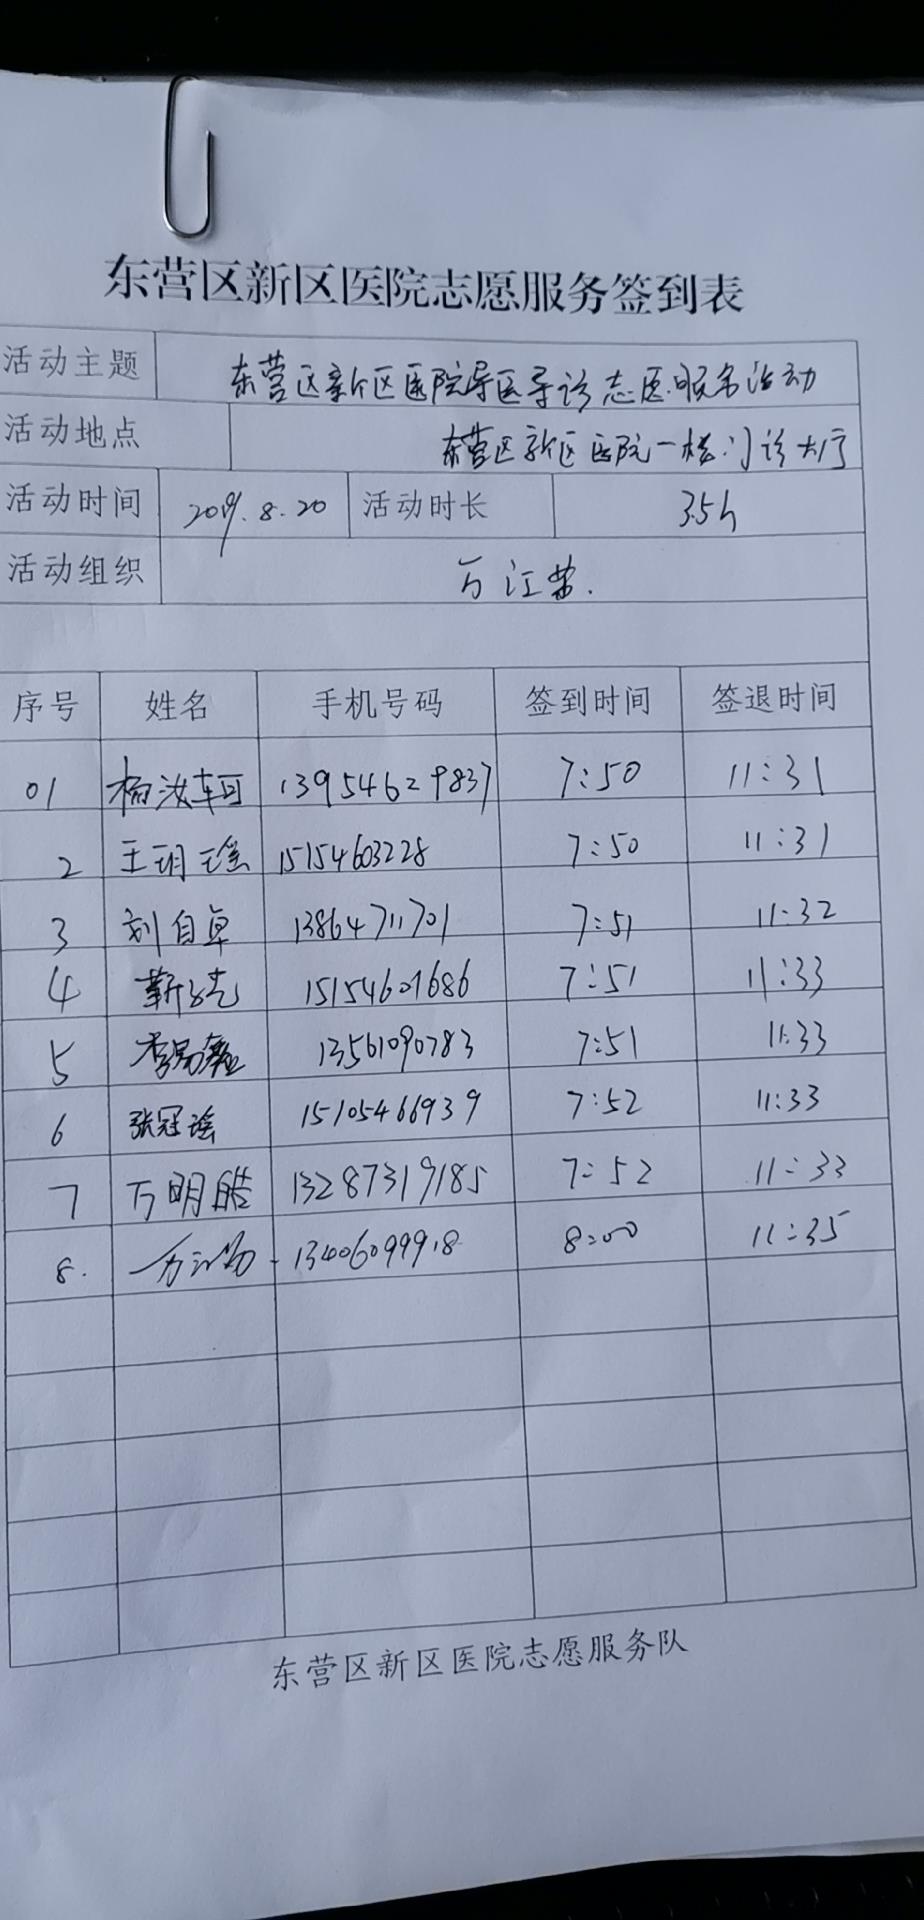 东营区新区医院志愿服务签到表
活动主题 东营区新区医院导医导诊志愿服务活动
活动地点 东营区新区医院一楼门诊大厅
活动时间 2019.8.20 活动时长 3.5h
活动组织 万江荣.
序号 姓名 手机号码 签到时间 签退时间
01 杨汝轲 13954629837 7:50 11:31
2 王玥瑶 15154603228 7:50 11:31
3 刘自卓 13864711701 7:51 11:32
4 靳 15154601686 7:51 11:33
5 李易 13561090783 7:51 11:33
6 张冠瑶 15105466939 7:52 11:33
7 万明皓 13287319185 7:52 11:33
8. 万江 13406099918 8:00 11:35
东营区新区医院志愿服务队